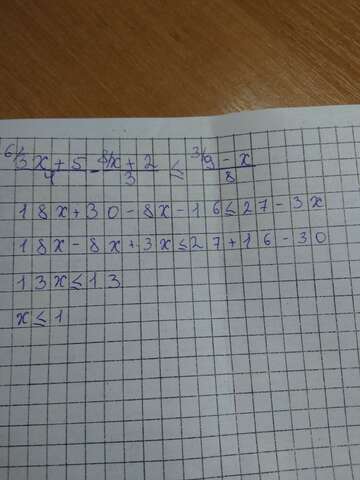 6/3x+5/4 - 8/x+2/3 ≤ 3/9-x/8
18x+30-8x-16≤27-3x
18x-8x+3x≤27+16-30
13x≤13
x≤1